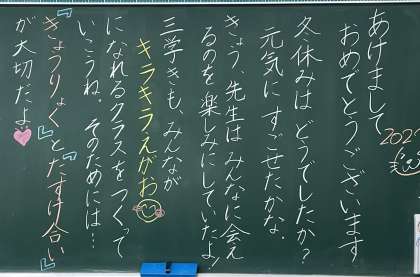 あけまして
おめでとうございます
冬休みは どうでしたか?
元気に すごせたかな。
きょう、先生は みんなに会え
るのを楽しみにしていたよ!
三学きも、みんなが
キラキラえがお
になれるクラスを つくって
いこうね。そのためには…
『きょうりょく』と『たすけ合い』
が大切だよ